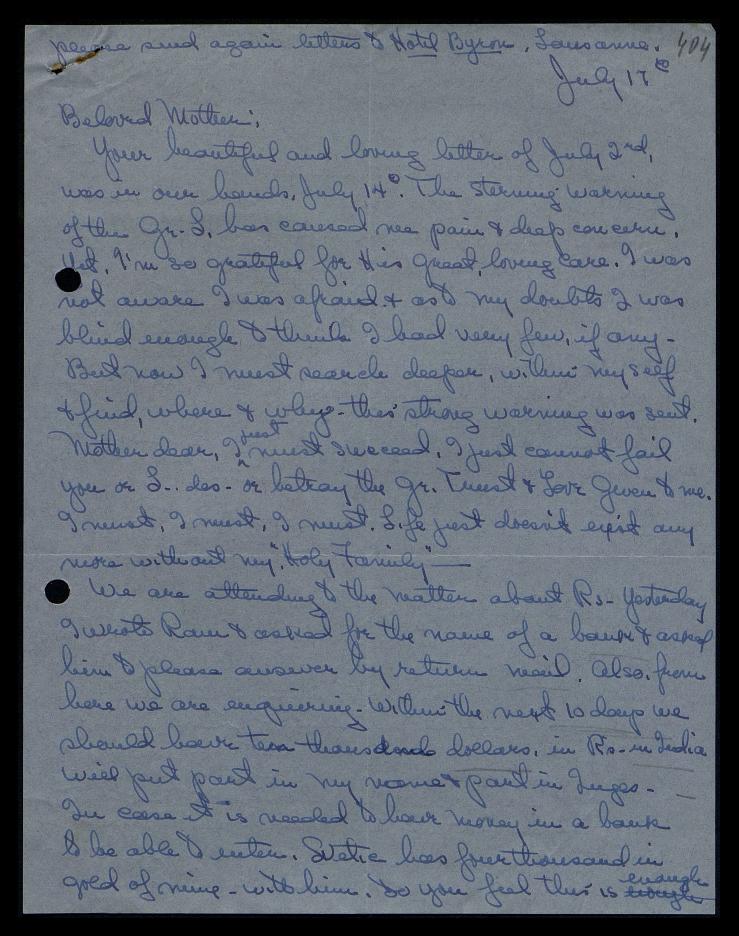 please send again letters to Hotel Byron, Lausanne. 404
July 17e
Beloved Mother,
Your beautiful and loving letter of July 2nd,
was in our hands, July 14e. The sterning warning
of the Gr. S. has caused me pain & deep concern.
Yet, I'm so grateful for His great, loving care. I was
not aware I was afraid & as to my doubts I was
blind enough to think I had very few, if any-
But now I must search deeper, within myself
& find, where & why - this strong warning was sent.
Mother dear, I just must succeed, I just cannot fail
you or S- des- or betray the Gr. Trust & Love Given to me.
I must, I must, I must. Life just doesn't exist any
more without my "Holy Family" —
We are attending to the matter about Rs- Yesterday
I wrote Ram & asked for the name of a bank & asked
him to please answer by return mail. Also, from
here we are enquiring. Within the next 10 days we
should have ten thousand dollars, in Rs- in India
Will put part in my name & part in Inges-
In case it is needed to have money in a bank
to be able to enter. Svetie has four thousand in
gold of mine - with him. Do you feel this is enough